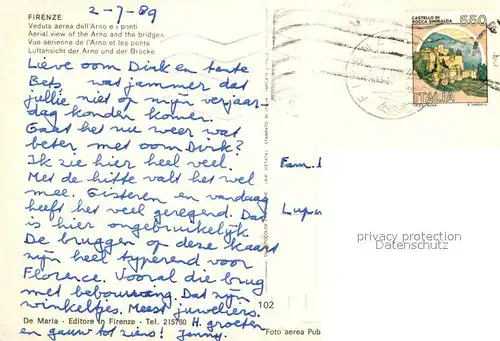 2-7-89
FIRENZE
Veduta aerea dell'Arno e i ponti
Aerial view of the Arno and the bridges
Vue aerienne de l'Arno et les ponts
Luftansicht der Arno und der Brücke
CASTELLO DI
ROCCA SINIBALDA
550
ITALIA
Lieve oom Dirk en tante
Bets, wat jammer dat
jullie niet op mijn verjaar-
dag konden komen.
Gaat het nu weer wat
beter met oom Dirk?
Ik zie hier heel veel.
Met de hitte valt het wel
mee. Gisteren en vandaag
heeft het veel geregend. Dat
is hier ongebruikelijk
De bruggen op deze kaart
zijn heel typerend voor
Florence. Vooral die brug
met bebouwing. Dat zijn
winkeltjes. Meest juweliers.
H. groeten
en gauw tot ziens! Jenny.
Fam.
Lupa
privacy protection
Datenschutz
102
De Maria - Editore in Firenze - Tel. 215760
Foto aerea Pub